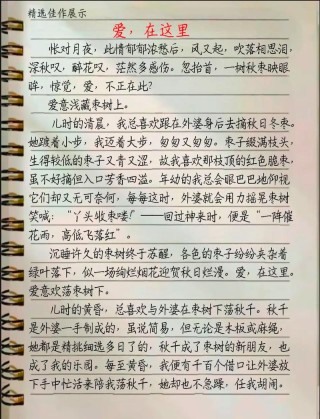 精选佳作展示
爱，在这里
怅对月夜，此情郁郁浓愁后，风又起，吹落相思泪，
深秋叹，醉花叹，茫然多感伤。忽抬首，一树秋枣映眼
眸，惊觉，爱，不正在此？
爱意浅藏枣树上。
儿时的清晨，我总喜欢跟在外婆身后去摘秋日冬枣。
她踱着小步，我迈着大步，匆匆又匆匆。枣子缀满枝头，
生得较低的枣子又青又涩，故我喜欢那枝顶的红色脆枣，
虽不好摘但入口芳香四溢。年幼的我总会眼巴巴地仰视
它们却又无可奈何，每每这时，外婆就会用力摇晃枣树
笑喊：“丫头收枣喽！——回过神来时，便是“一阵催
花雨，高低飞落红”。
沉睡许久的枣树终于苏醒，各色的枣子纷纷夹杂着
绿叶落下，似一场绚烂烟花迎贺秋日烂漫。爱，在这里。
爱意欢荡枣树下。
儿时的黄昏，总喜欢与外婆在枣树下荡秋千。秋千
是外婆一手制成的，虽说简易，但无论是木板或麻绳，
她都是精挑细选多日了的，秋千成了枣树的新朋友，也
成了我的乐园。每至黄昏，我便有千百个借口让外婆放
下手中忙活来陪我荡秋千，她却也不急躁，任我胡闹。